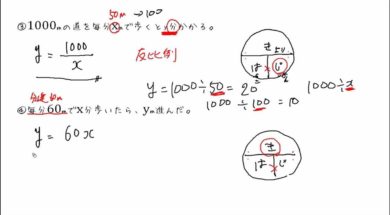 50m → 100
③1000mの道を毎分xmで歩くとy分かかる。
y = 1000/x
反比例
き
は じ
y = 1000÷50 = 20
1000÷x
1000÷100 = 10
分速60m
④毎分60mでx分歩いたら、ym進んだ。
y = 60x
き
は じ